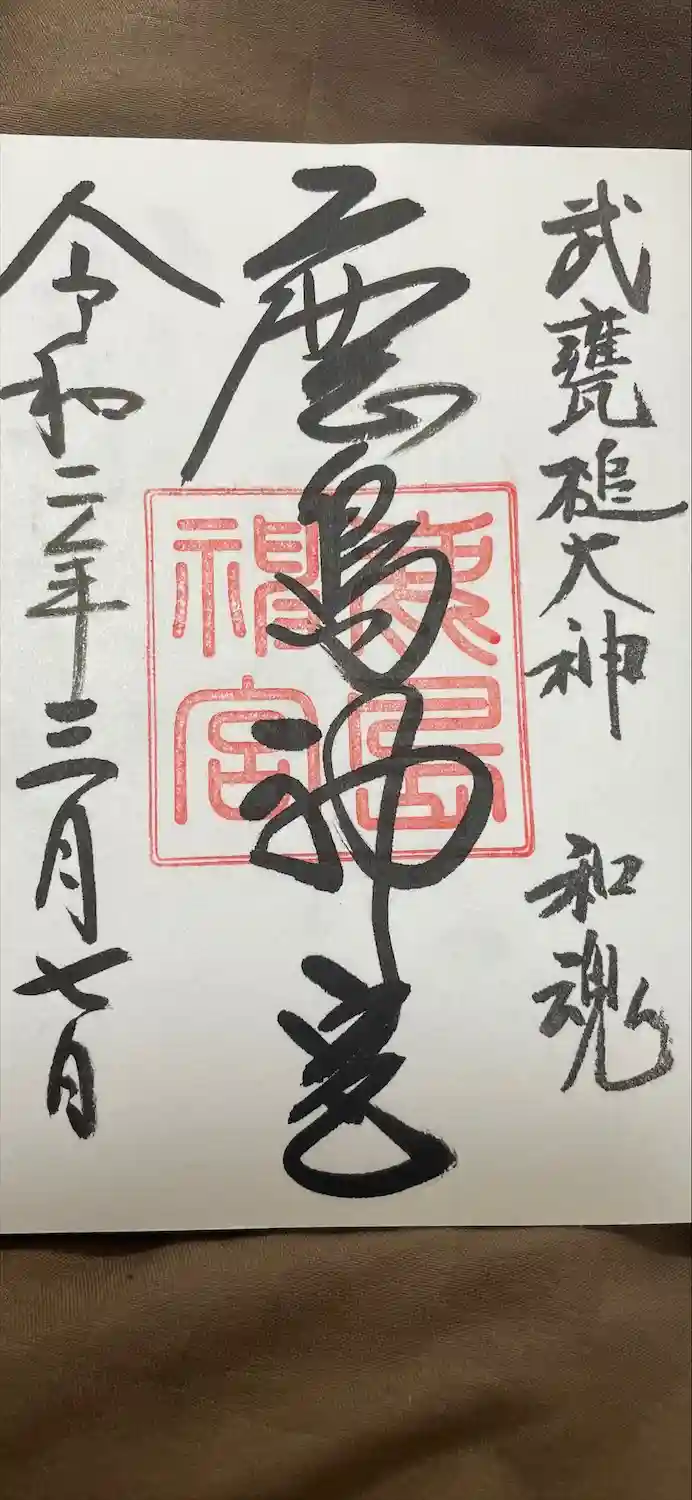 武甕槌大神 和魂
鹿島神宮
鹿島神宮
令和二年三月七日